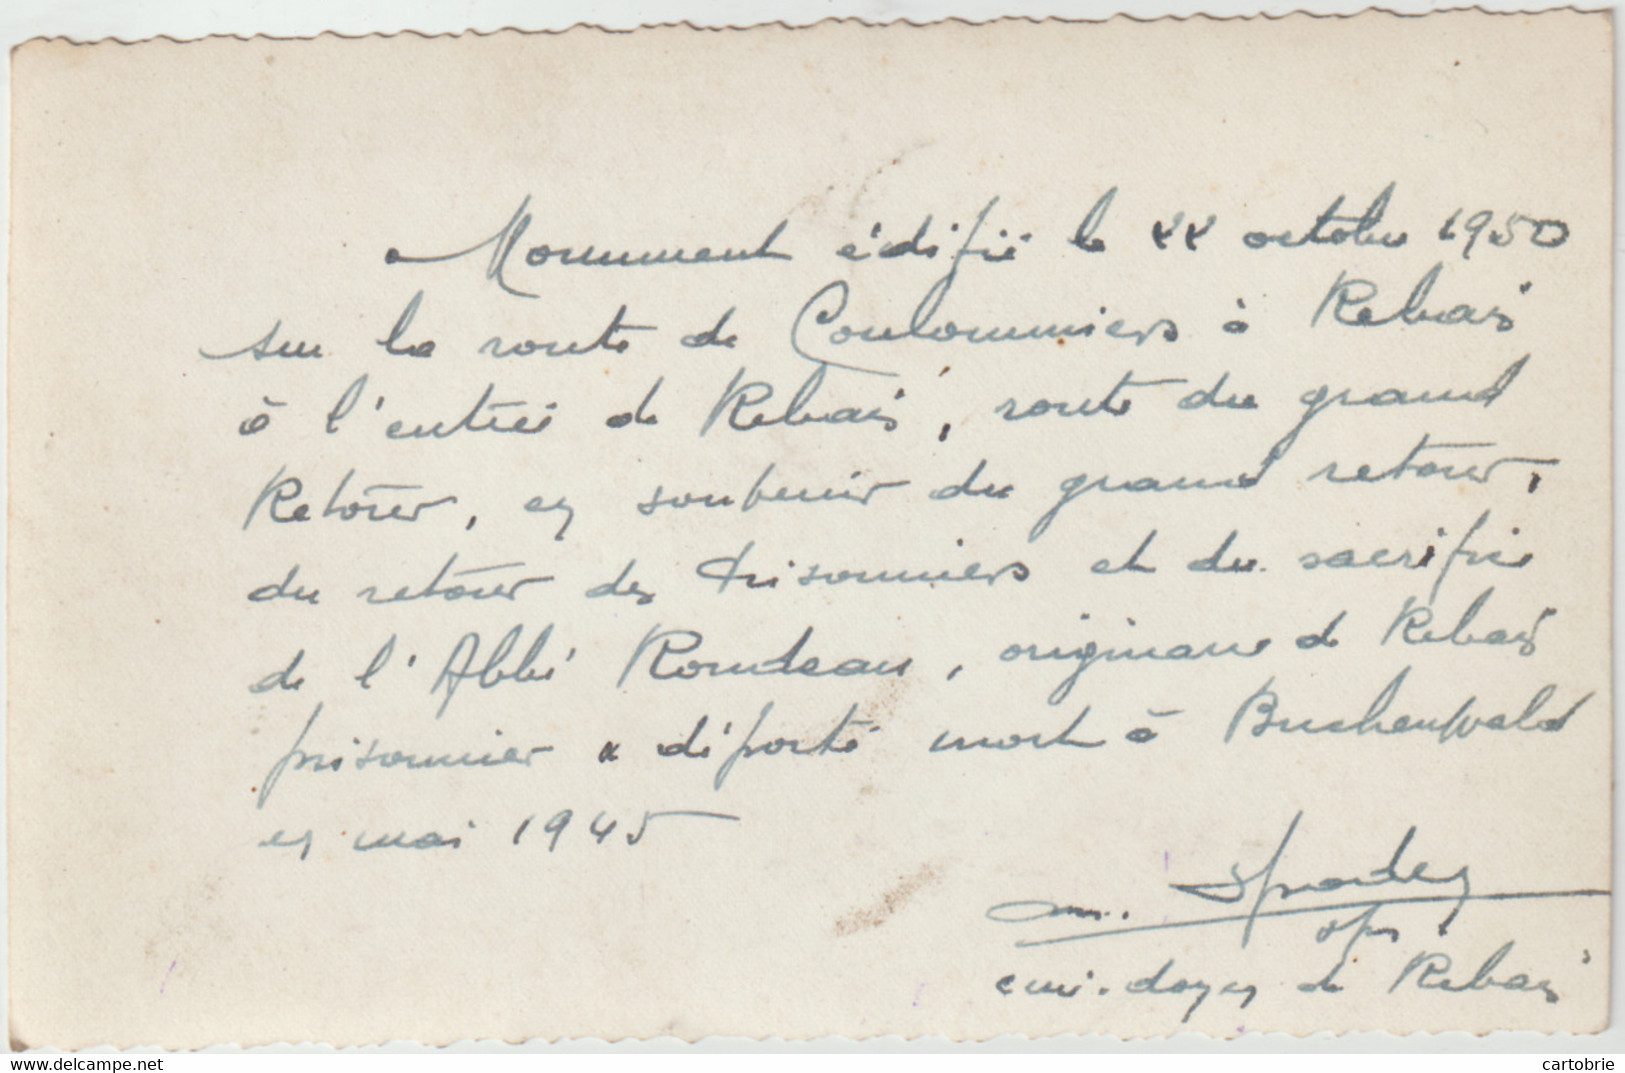 Monument édifié le 22 octobre 1950
sur la route de Coulommiers à Rebais
à l'entrée de Rebais, route du grand
Retour, en souvenir du grand retour,
du retour des prisonniers et du sacrifice
de l'Abbé Rondeau, originaire de Rebais
prisonnier & déporté mort à Buchenwald
en mai 1945
curé-doyen de Rebais
www.delcampe.net
cartobrie